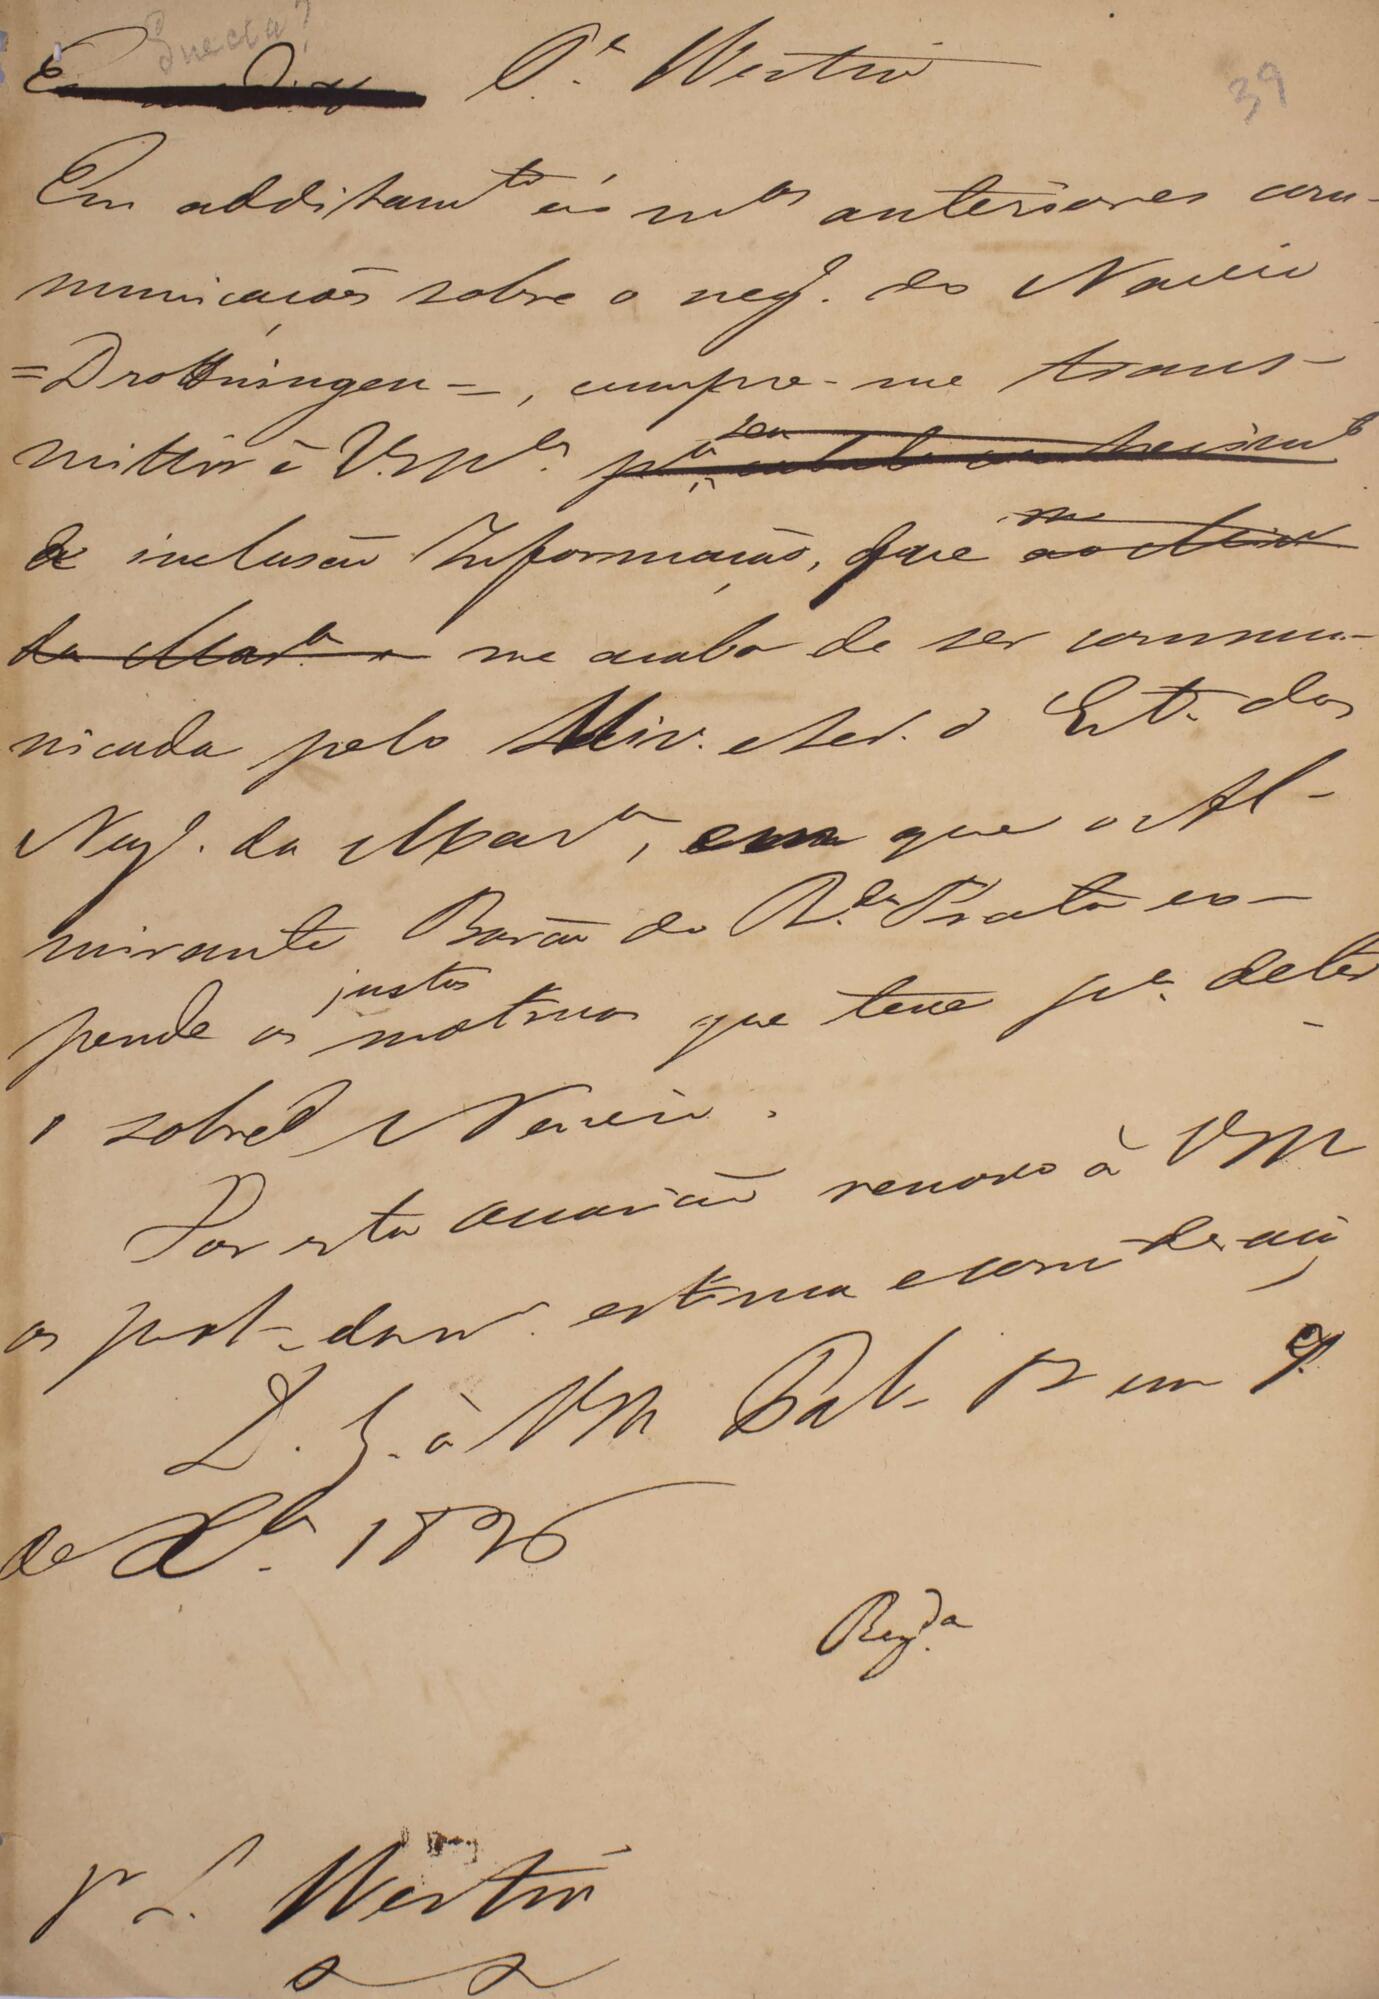 Suecia?
Pª Westin
39
Em additamto ás mas anteriores com-
municaçoẽs sobre o negº. do Navio
=Drottningen=, cumpre-me trans-
mittir á V.Mce. pa. seu
a inclusa Informação, que
da Mara. me acaba de ser commu-
nicada pelo Min. e Secr. d' Est. dos
Negº. da Mara, em que o Al-
mirante Barão do Rº. da Prata ex-
pende os justos motivos que teve pa. deter
o sobredº Navio.
Por esta occasião renovo á VM
os prot. da mª. estima e consideração
D. G. á VM Pal. 12 em 9
de Xbro. 1826
Regda.
Sr. L. Westin